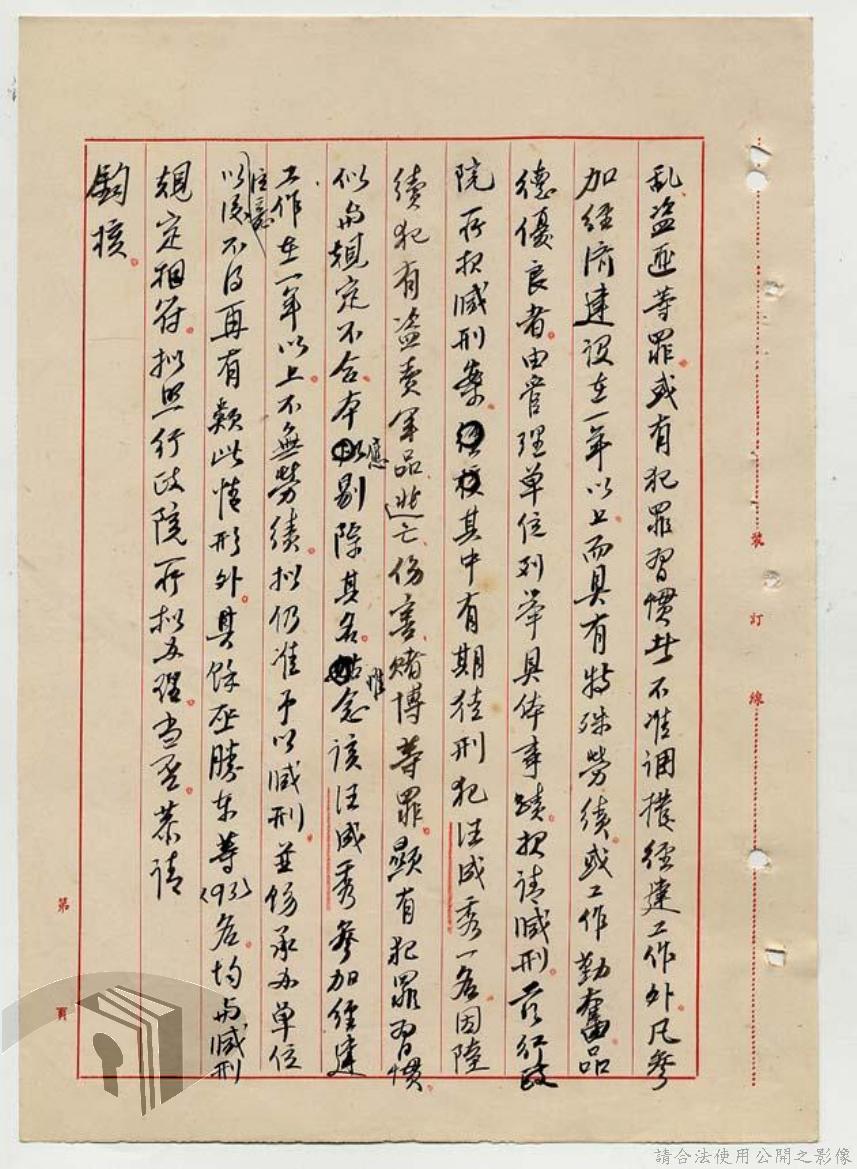 乱盜匪等罪或有犯罪習慣者不准調撥經建工作外。凡參
加經濟建設在一年以上。而具有特殊勞績。或工作勤奮品
德優良者。由管理單位列舉具体事蹟。報請減刑。茲行政
院所报減刑案。其中有期徒刑犯汪成秀一名。因陸
續犯有盜賣軍品、逃亡、傷害、賭博等罪。顯有犯罪習慣。
似与規定不合。本應剔除其名。惟念該汪成秀參加經建
工作在一年以上。不無勞績。拟仍准予以減刑。並飭承办單位
注意
以後不得再有類此情形外。其餘 勝東等(93)名。均与減刑
規定相符。拟照行政院所拟办理。当否。恭請
鈞核。
裝
訂
線
第
頁
請合法使用公開之影像